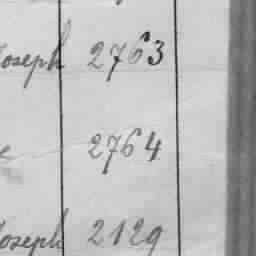 Joseph 2763
2764
Joseph 2129